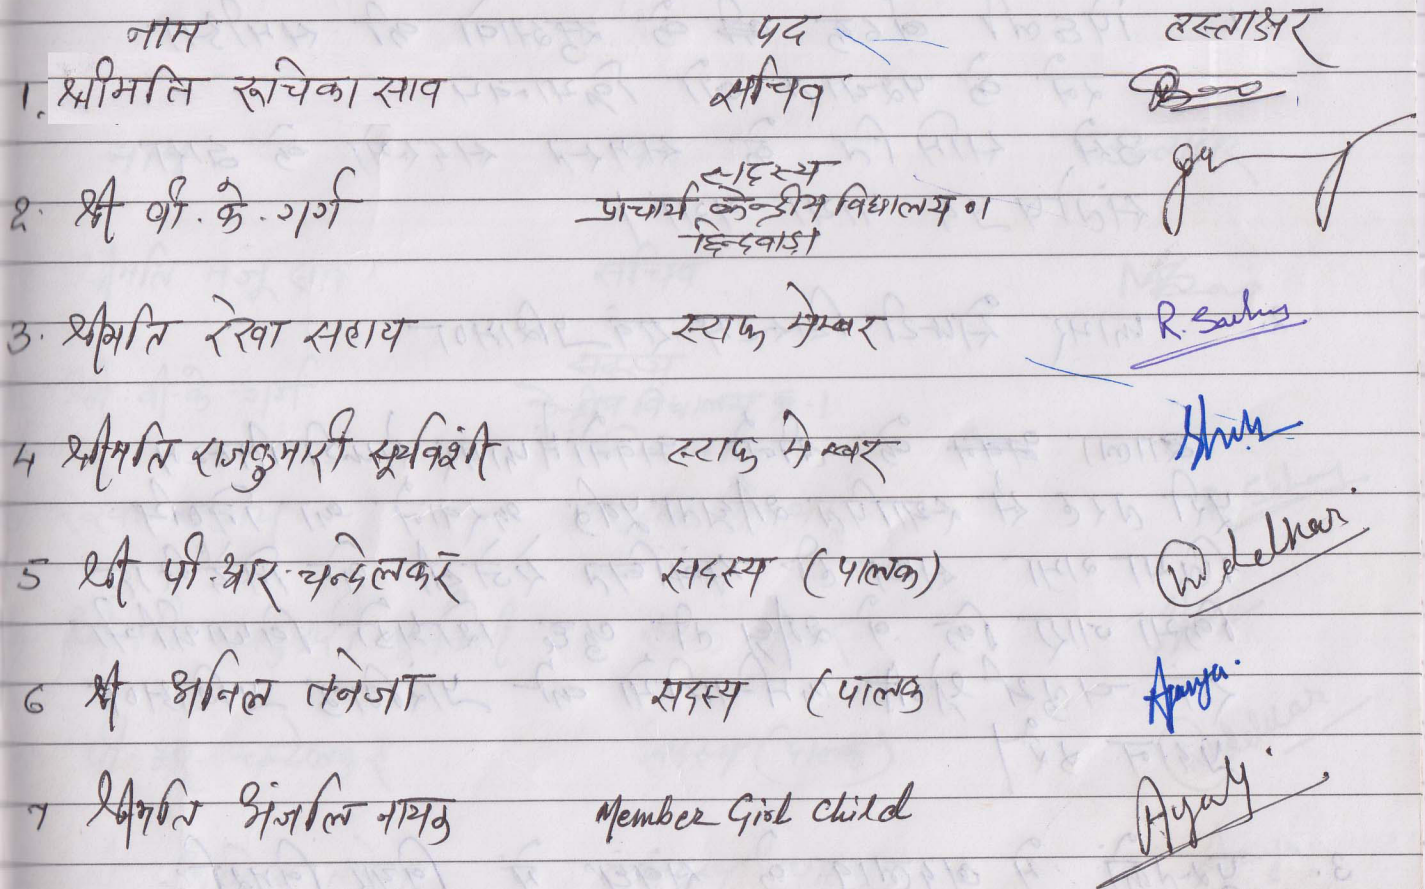 नाम पद हस्ताक्षर
1. श्रीमति रूचिका साव सचिव
2. श्री वी. के. गर्ग सदस्य
प्राचार्य केन्द्रीय विद्यालय न 1
छिन्दवाड़ा
3. श्रीमति रेखा सहाय स्टाफ मेम्बर R. Sahay
4 श्रीमति राजकुमारी सूर्यवंशी स्टाफ मेम्बर
5 श्री पी. आर. चन्देलकर सदस्य (पालक)
6 श्री अनिल तनेजा सदस्य (पालक
7 श्रीमति अंजलि नायक Member Girl Child